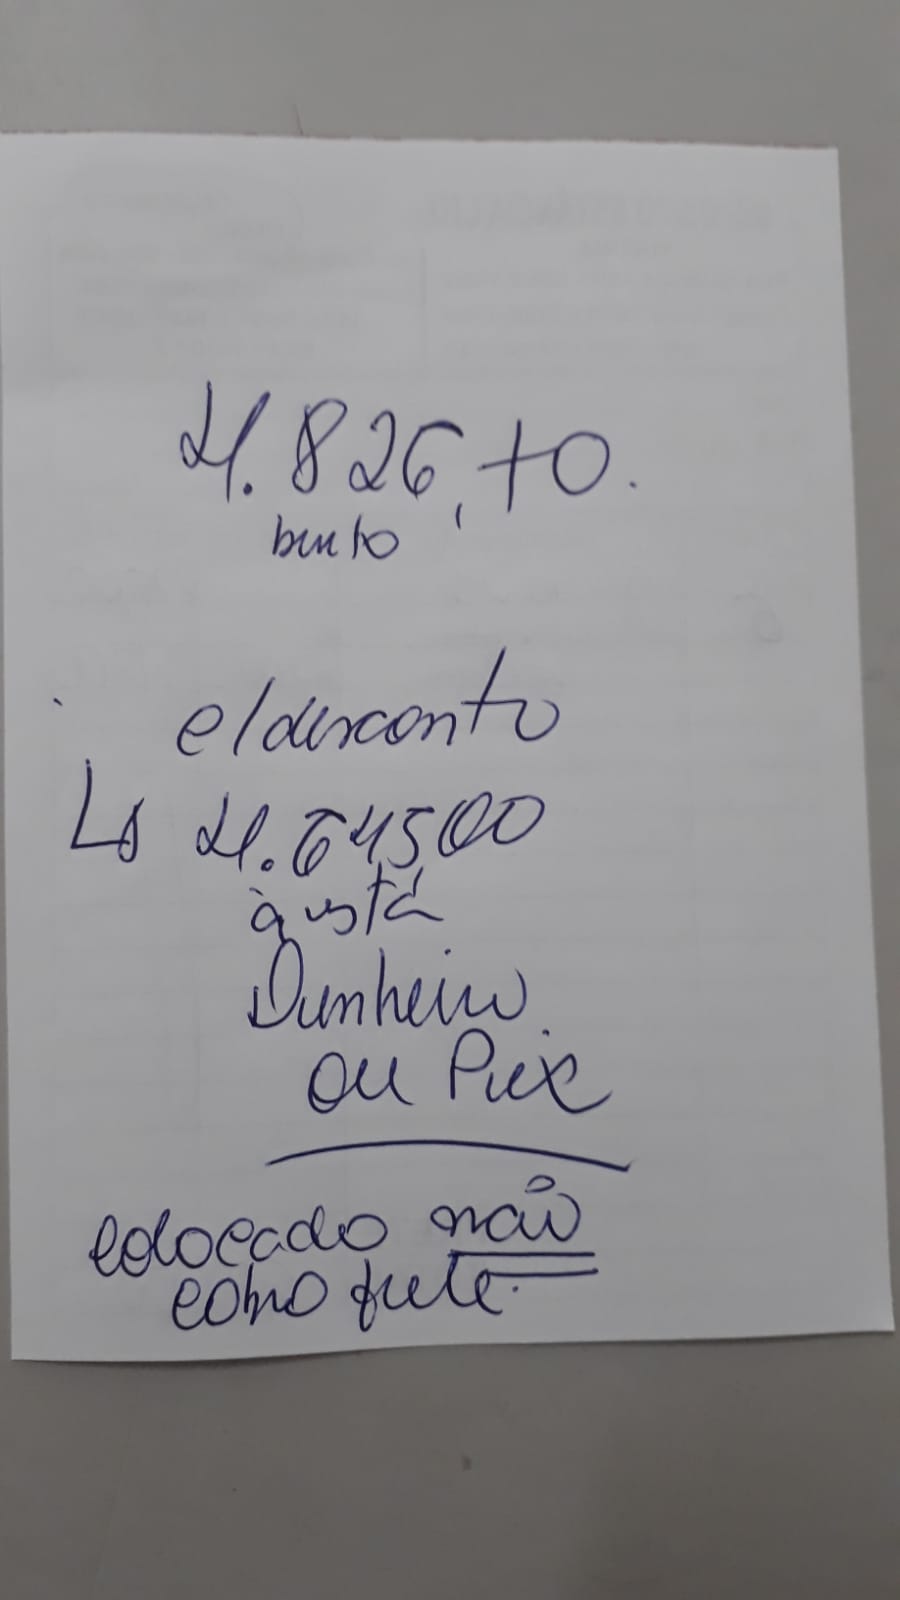 4.826,70.
bruto
c/desconto
↳ 4.645,00
à vista
Dinheiro
ou Pix
colocado não
como frete.